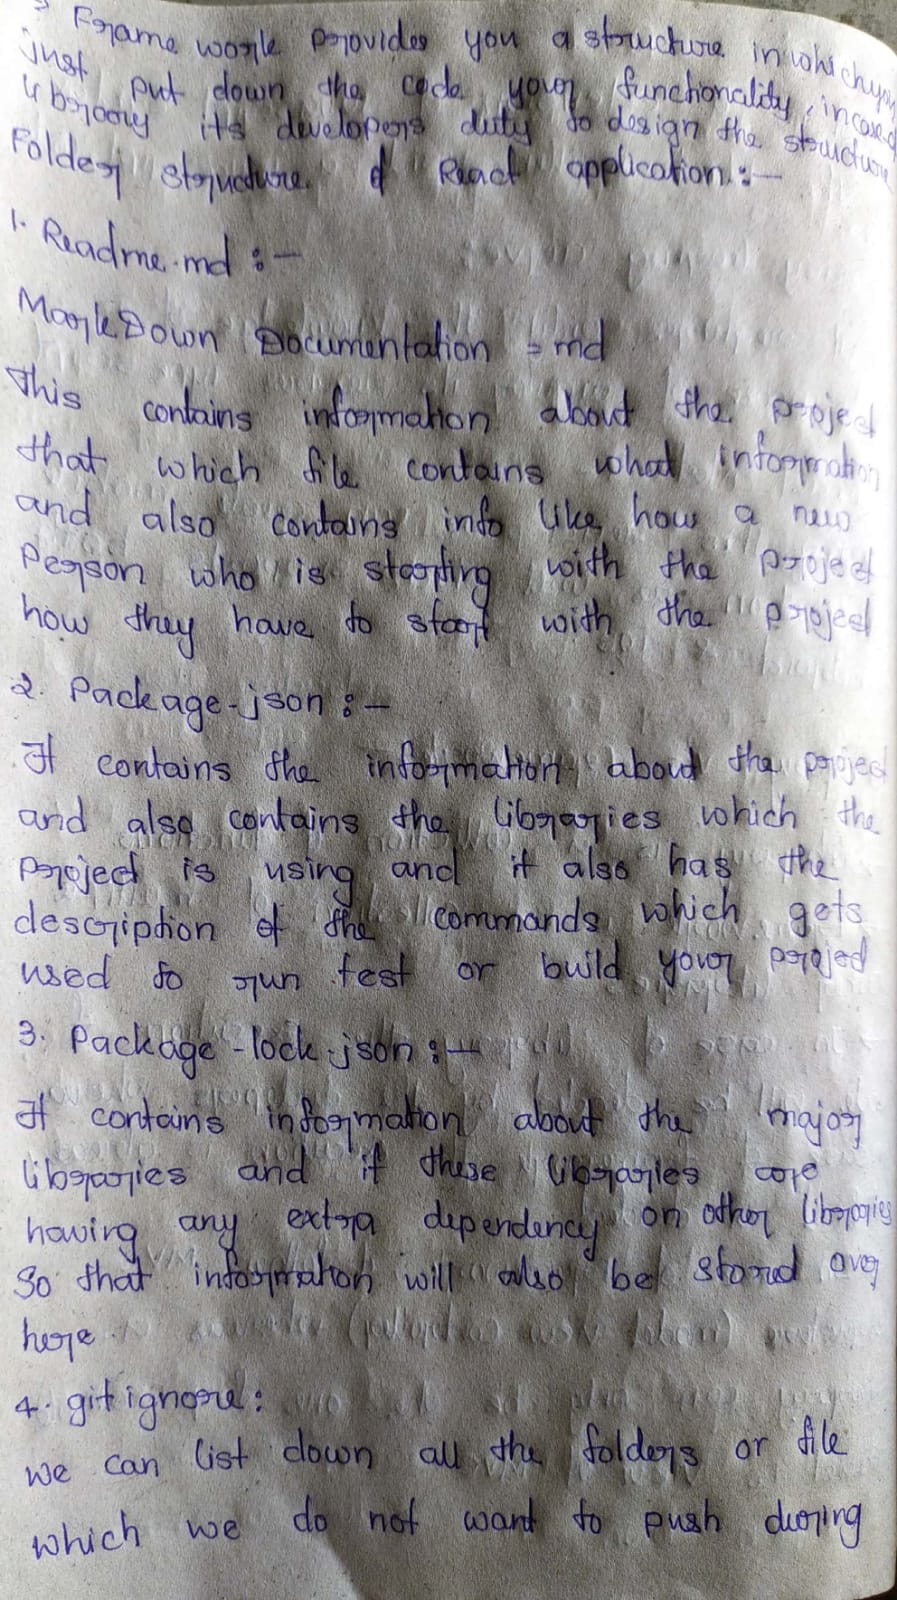 Frame work provides you a structure in which you
just put down the code your functionality, in case of
library its developers duty to design the structure
Folder structure of React application :-
1. Readme.md :-
MarkDown Documentation = md
This contains information about the project
that which file contains what information
and also contains info like how a new
Person who is starting with the project
how they have to start with the project
2. Package-json :-
It contains the information about the project
and also contains the libraries which the
project is using and it also has the
description of the commands which gets
used to run test or build your project
3. Package-lock.json :-
It contains information about the major
libraries and if these libraries are
having any extra dependency on other libraries
So that information will also be stored over
here.
4. gitignore:
we can list down all the folders or file
which we do not want to push during